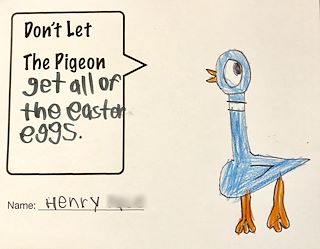 Don't Let
The Pigeon
get all of
the easter
eggs.
Name: Henry